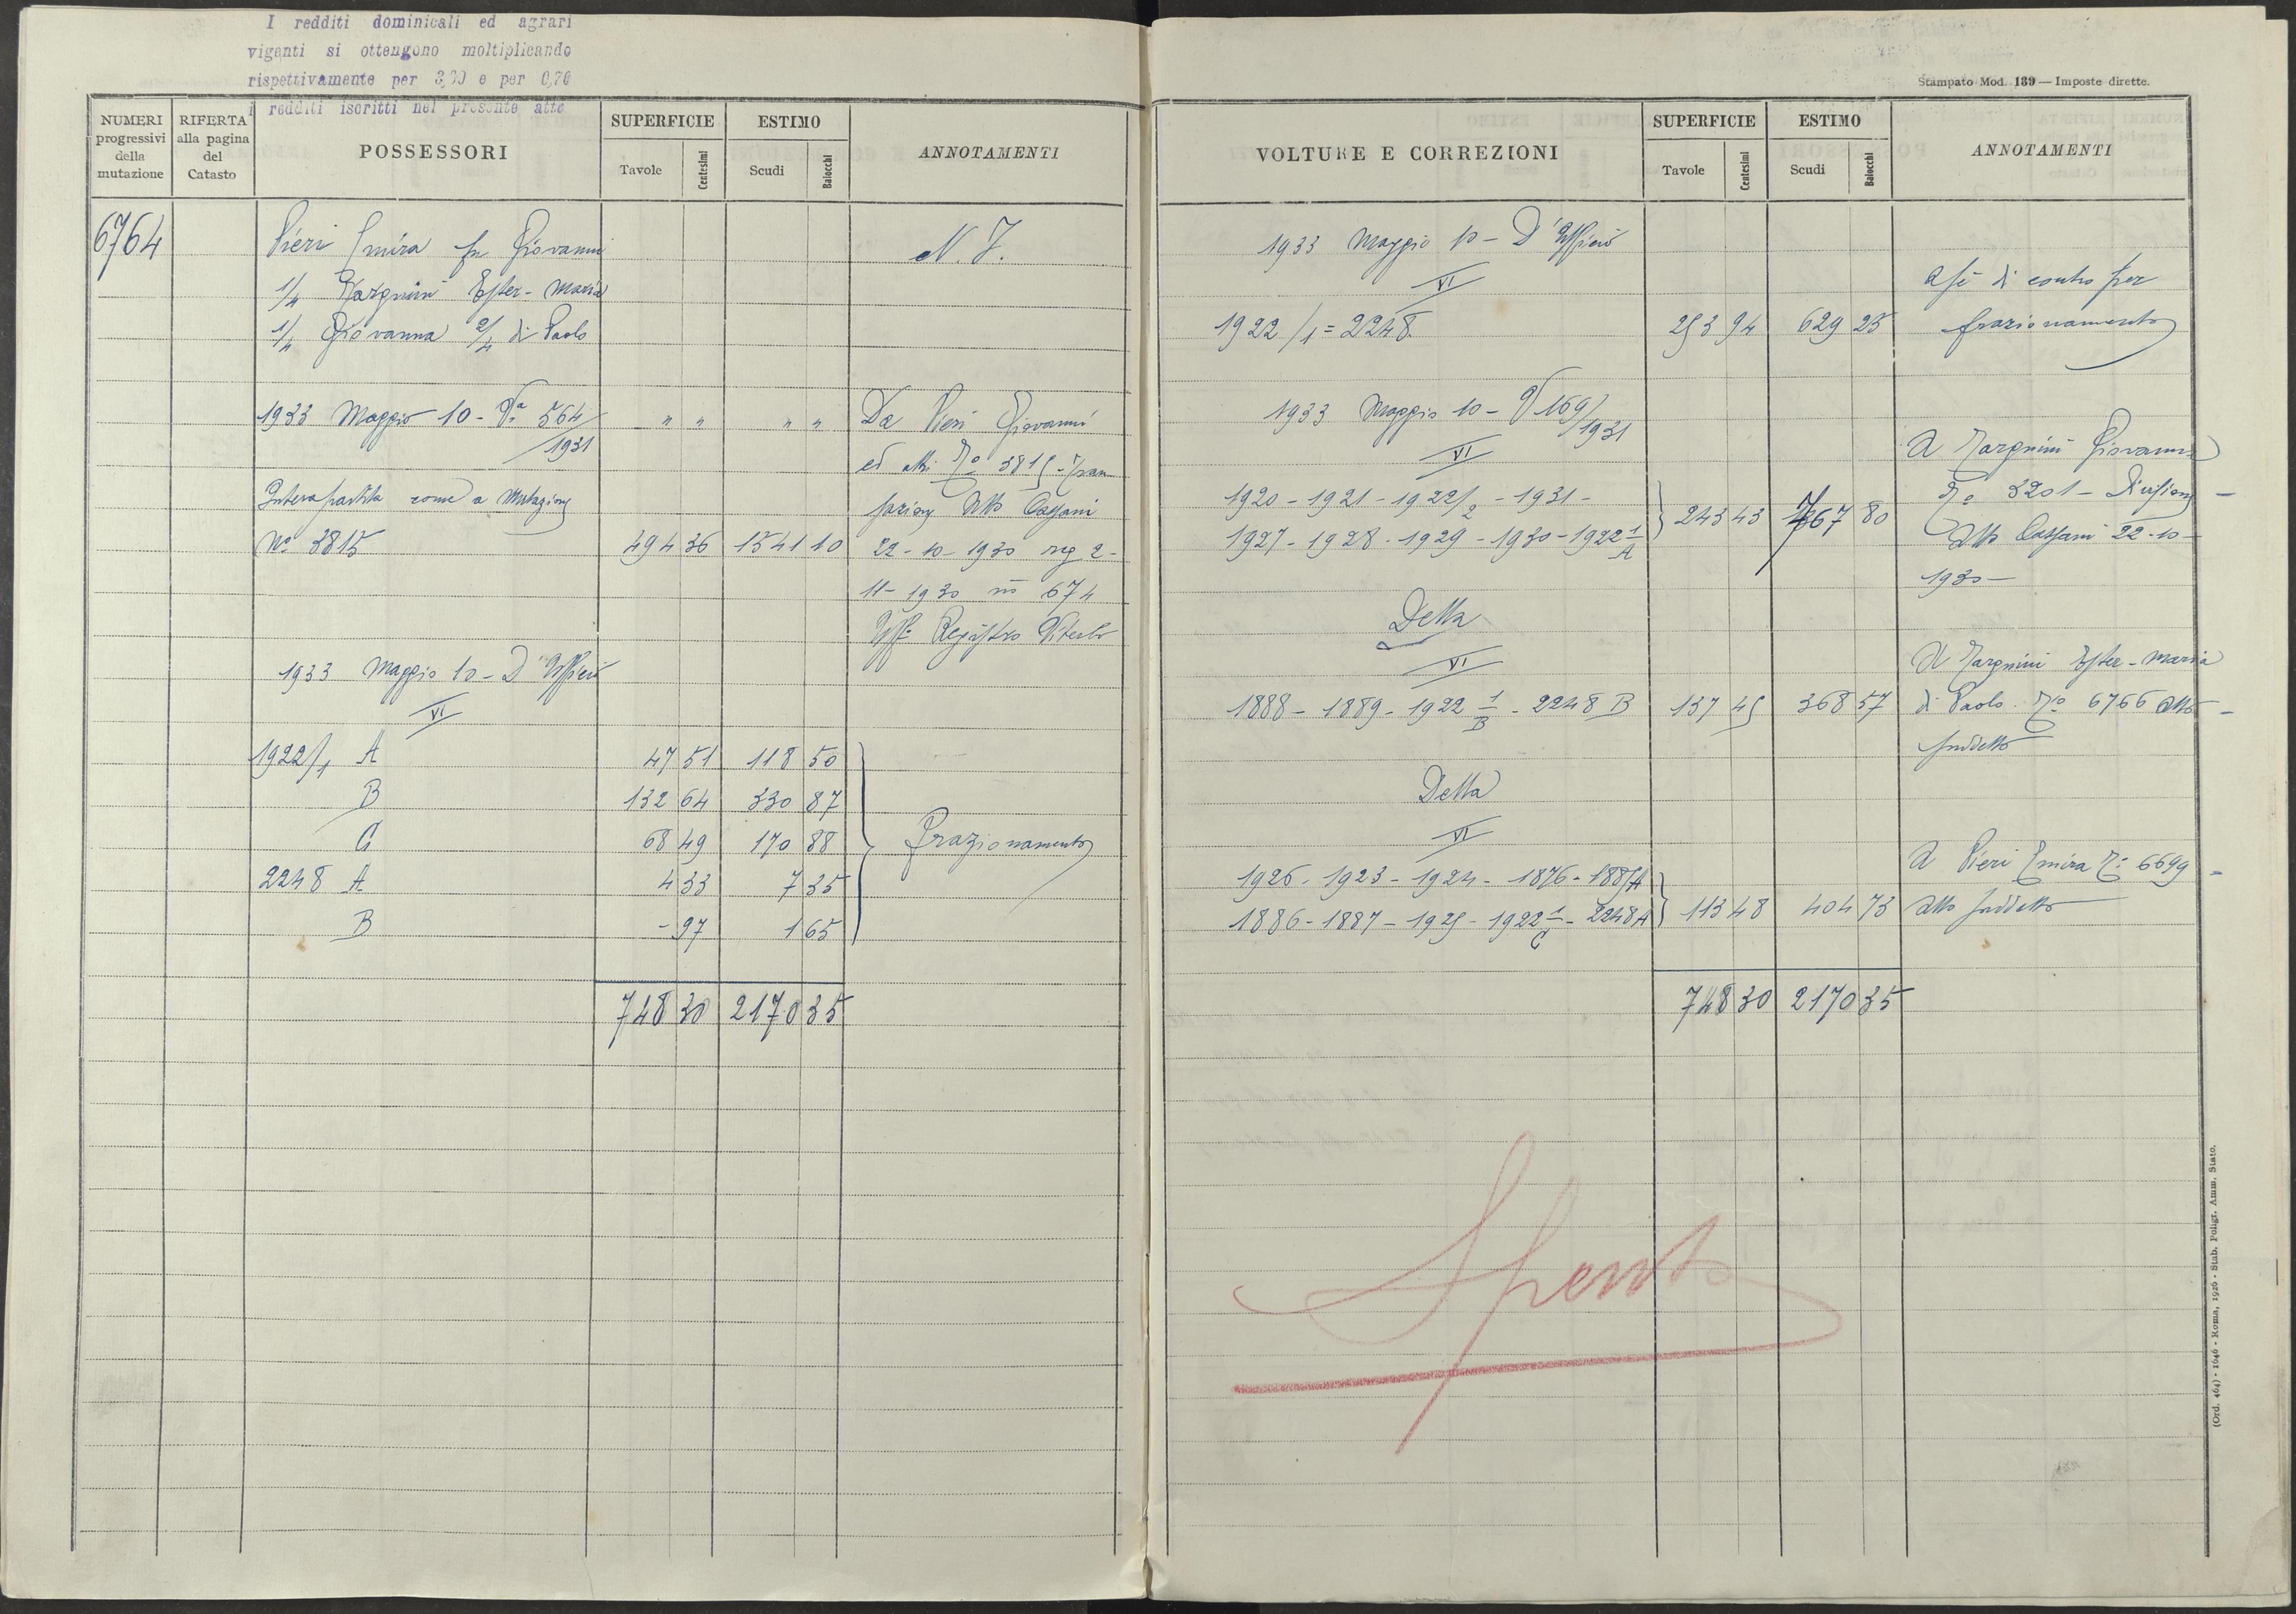 I redditi dominicali ed agrari
vigenti si ottengono moltiplicando
rispettivamente per 3,00 e per 0,70
i redditi iscritti nel presente atto
NUMERI progressivi della mutazione
RIFERTA alla pagina del Catasto
POSSESSORI
SUPERFICIE
Tavole Centesimi
ESTIMO
Scudi Baiocchi
ANNOTAMENTI
6764 Pieri Emira fu Giovanni N. I.
1/4 Margnini Ester-Maria
1/4 Giovanna 2/4 di Paolo
1933 Maggio 10 - Va 564/1931 " " " " Da Pieri Giovanni
ed altri No 3815 - Tran
Intera partita come a Mutazione sazione Atto Cassani
No 3815 494 36 1541 10 22-10-1930 reg 2-
11-1930 no 674
Uff. Registro Viterbo
1933 Maggio 10 - D'Ufficio
VI
1922/1 A 47 51 118 50
B 132 64 330 87
C 68 49 170 88 frazionamento
2248 A 4 33 7 35
B - 97 1 65
748 30 2170 35
Stampato Mod. 139 — Imposte dirette.
VOLTURE E CORREZIONI
SUPERFICIE
Tavole Centesimi
ESTIMO
Scudi Baiocchi
ANNOTAMENTI
1933 Maggio 10 - D'Ufficio
VI
A sé di contro per
1922/1 = 2248 253 94 629 25 frazionamento
1933 Maggio 10 - V 169/1931
VI
A Margnini Giovanna
1920 - 1921 - 1922/2 - 1931 - No 3201 - Divisione
1927 - 1928 - 1929 - 1930 - 1922 1/A 243 43 767 80 Atto Cassani 22-10-
1930 -
Detta
VI
A Margnini Ester-Maria
1888 - 1889 - 1922 1/B - 2248 B 137 45 368 57 di Paolo No 6766 Atto
suddetto
Detta
VI
A Pieri Emira No 6699
1926 - 1923 - 1924 - 1876 - 1885/A
1886 - 1887 - 1925 - 1922 1/C - 2248 A 113 48 404 73 Atto suddetto
748 30 2170 35
Spento
(Ord. 464) - 1646 - Roma, 1926 - Stab. Poligr. Amm. Stato.